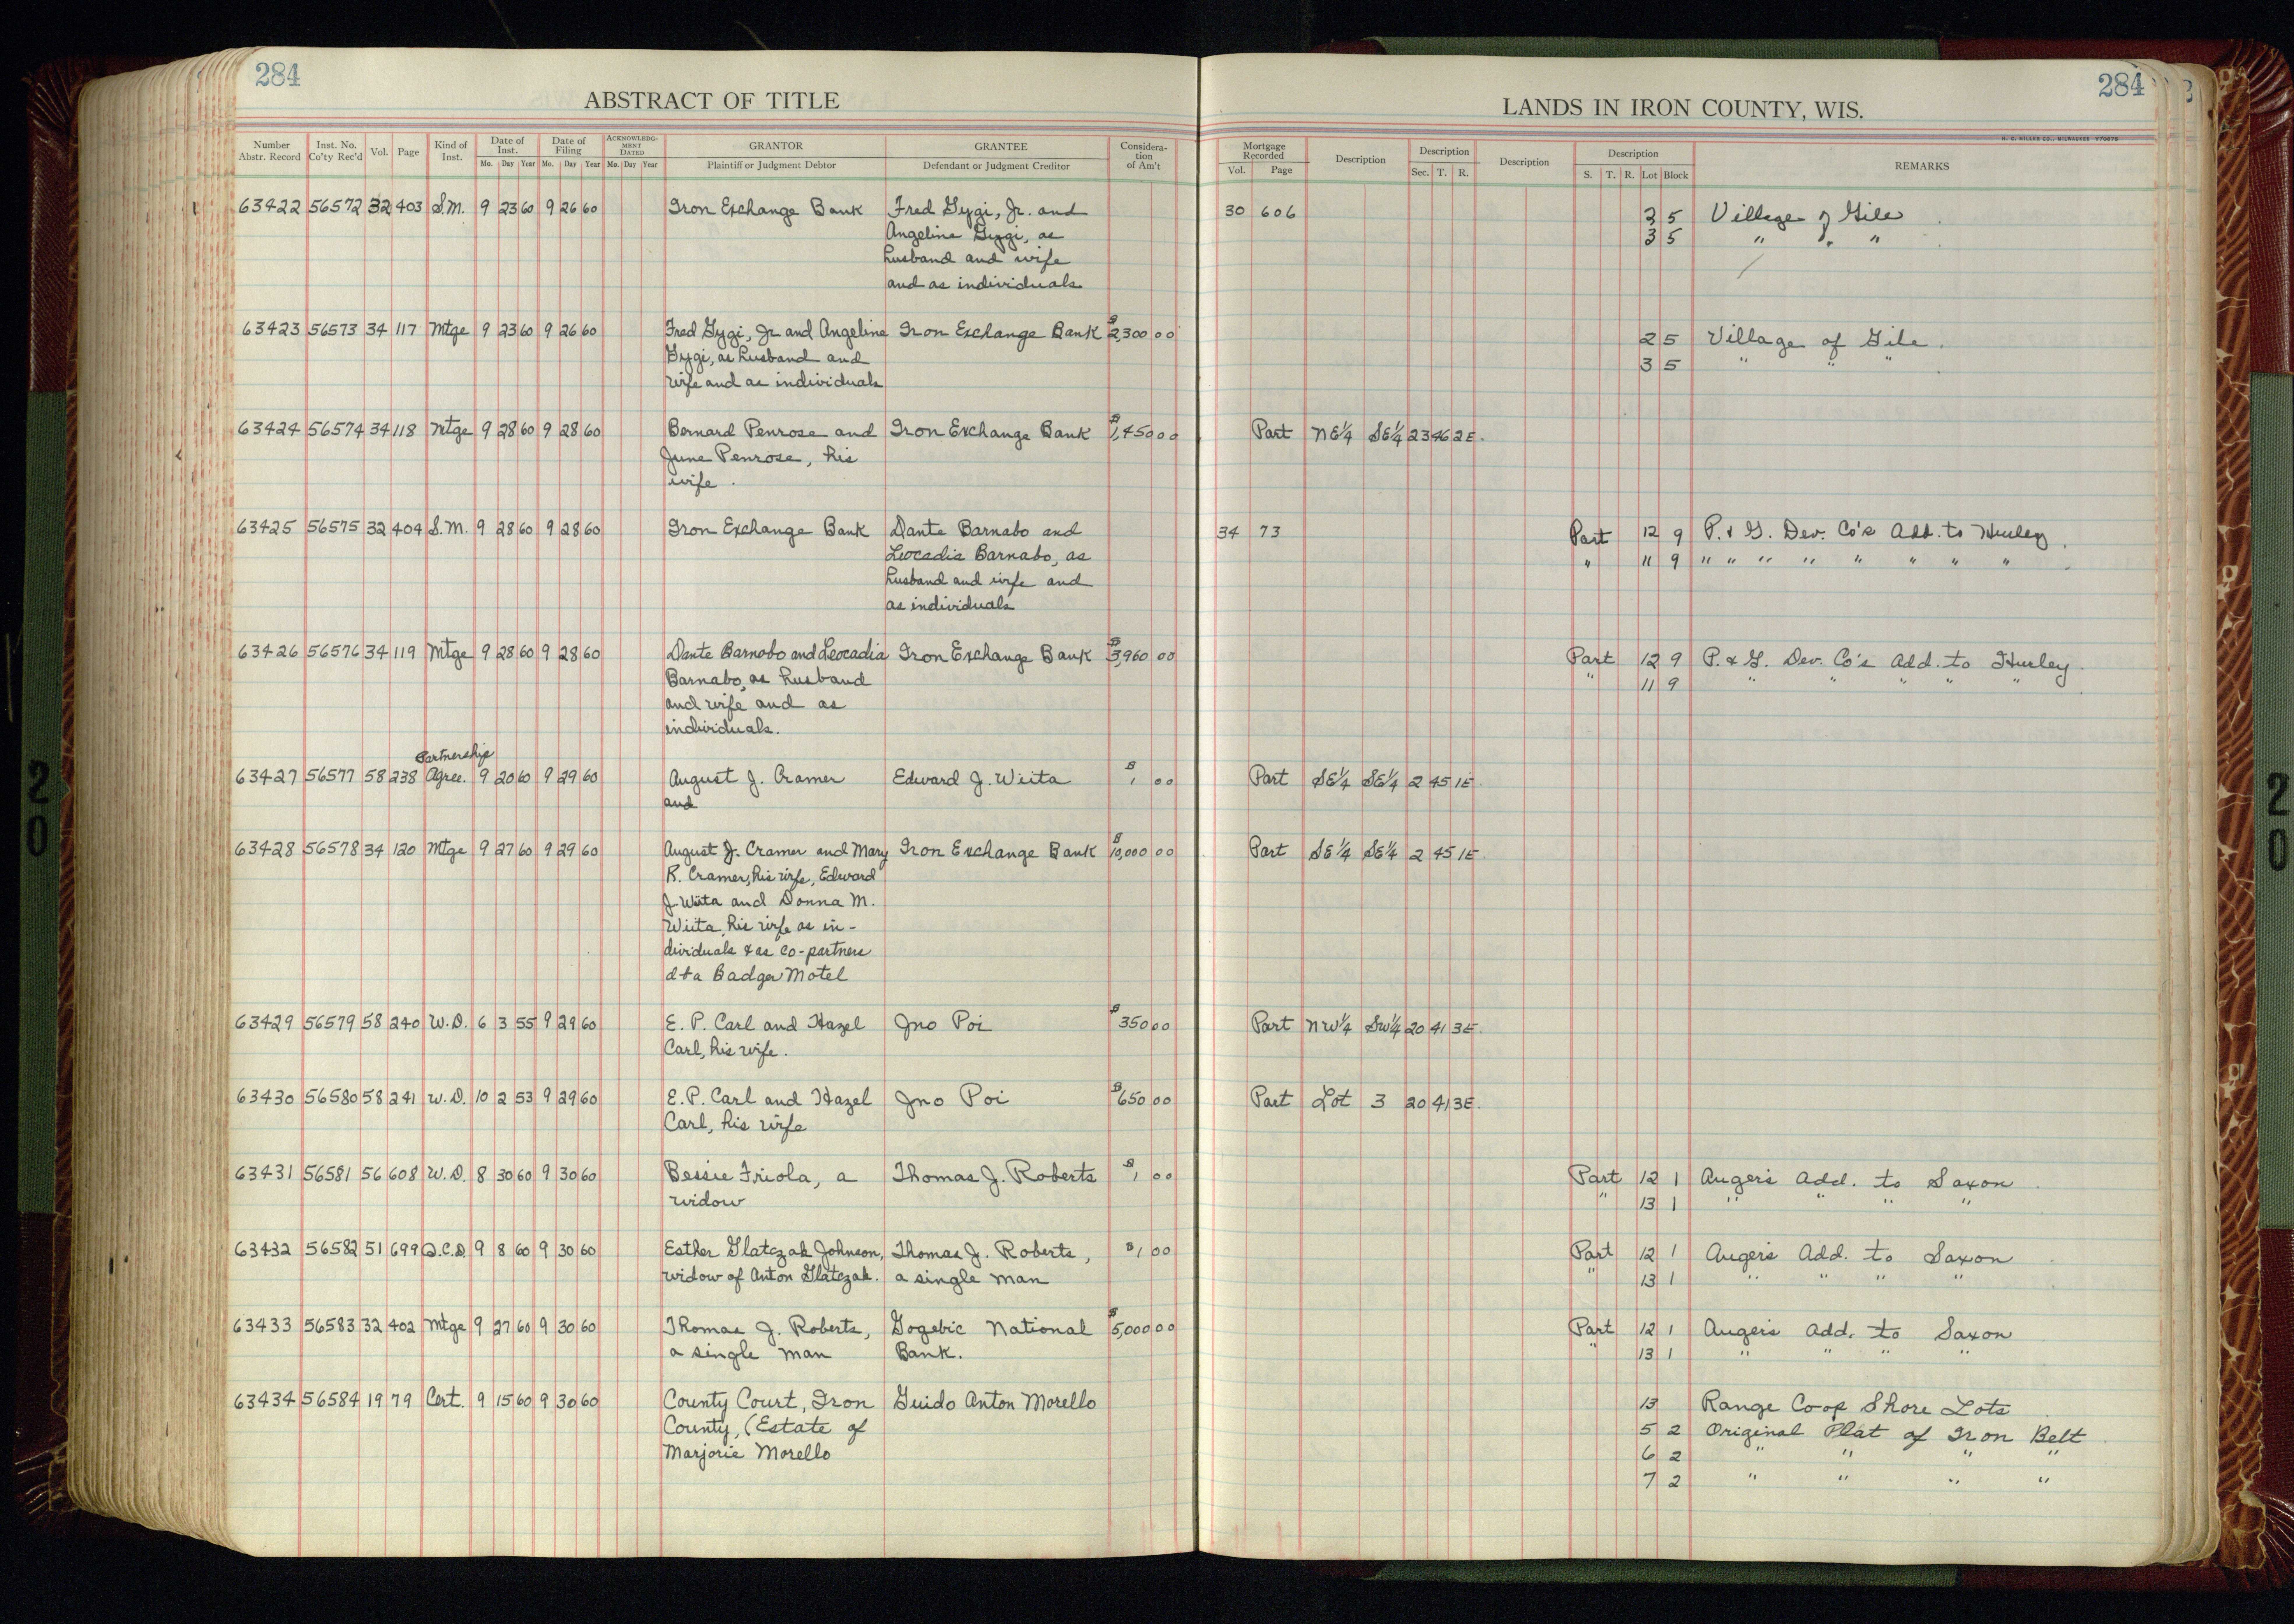 284
284
ABSTRACT OF TITLE
LANDS IN IRON COUNTY, WIS.
H. C. MILLER CO., MILWAUKEE
Number Abstr. Record Inst. No. Co'ty Rec'd Vol. Page Kind of Inst. Date of Inst. Mo. Day Year Date of Filing Mo. Day Year ACKNOWLEDGMENT DATED Mo. Day Year GRANTOR Plaintiff or Judgment Debtor GRANTEE Defendant or Judgment Creditor Consideration of Am't Mortgage Recorded Vol. Page Description Description Sec. T. R. Description Description S. T. R. Lot Block REMARKS
63422 56572 32 403 S.M. 9 23 60 9 26 60 Iron Exchange Bank Fred Gygi, Jr. and 30 606 2 5 Village of Gile
Angeline Gygi, as 3 5 " " "
husband and wife
and as individuals
63423 56573 34 117 Mtge 9 23 60 9 26 60 Fred Gygi, Jr and Angeline Iron Exchange Bank $2,300 00 2 5 Village of Gile.
Gygi, as husband and 3 5 " " "
wife and as individuals
63424 56574 34 118 Mtge 9 28 60 9 28 60 Bernard Penrose and Iron Exchange Bank $1,450 00 Part NE1/4 SE1/4 23 46 2E.
June Penrose, his
wife.
63425 56575 32 404 S.M. 9 28 60 9 28 60 Iron Exchange Bank Dante Barnabo and 34 73 Part 12 9 P. & G. Dev. Co's Add. to Hurley.
Leocadia Barnabo, as " 11 9 " " " " " " " "
husband and wife and
as individuals
63426 56576 34 119 Mtge 9 28 60 9 28 60 Dante Barnabo and Leocadia Iron Exchange Bank $3,960 00 Part 12 9 P. & G. Dev. Co's Add. to Hurley.
Barnabo, as husband " 11 9 " " " " "
and wife and as
individuals.
Partnership
63427 56577 58 238 Agree. 9 20 60 9 29 60 August J. Cramer Edward J. Wiita $1 00 Part SE1/4 SE1/4 2 45 1E.
and
63428 56578 34 120 Mtge 9 27 60 9 29 60 August J. Cramer and Mary Iron Exchange Bank $10,000 00 Part SE1/4 SE1/4 2 45 1E.
R. Cramer, his wife, Edward
J. Wiita and Donna M.
Wiita, his wife as in-
dividuals & as co-partners
d+a Badger Motel
63429 56579 58 240 W.D. 6 3 55 9 29 60 E. P. Carl and Hazel Jno Poi $350 00 Part NW1/4 SW1/4 20 41 3E.
Carl, his wife.
63430 56580 58 241 W.D. 10 2 53 9 29 60 E. P. Carl and Hazel Jno Poi $650 00 Part Lot 3 20 41 3E.
Carl, his wife
63431 56581 56 608 W.D. 8 30 60 9 30 60 Bessie Friola, a Thomas J. Roberts $1 00 Part 12 1 Auger's Add. to Saxon
widow " 13 1 " " " "
63432 56582 51 699 Q.C.D. 9 8 60 9 30 60 Esther Glatczak Johnson, Thomas J. Roberts, $1 00 Part 12 1 Auger's Add. to Saxon
widow of Anton Glatczak. a single man " 13 1 " " " "
63433 56583 32 402 Mtge 9 27 60 9 30 60 Thomas J. Roberts, Gogebic National $5,000 00 Part 12 1 Auger's Add. to Saxon
a single man Bank. " 13 1 " " " "
63434 56584 19 79 Cert. 9 15 60 9 30 60 County Court, Iron Guido Anton Morello 13 Range Co-op Shore Lots
County, (Estate of 5 2 Original Plat of Iron Belt
Marjorie Morello 6 2 " " " "
7 2 " " " "
20
20